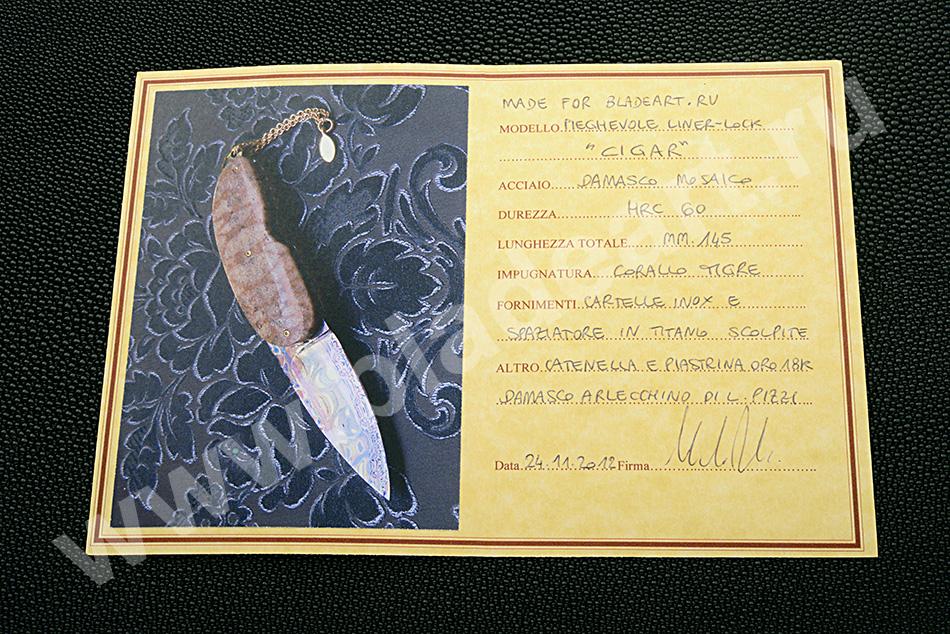 MADE FOR BLADEART.RU
MODELLO PIEGHEVOLE LINER-LOCK
"CIGAR"
ACCIAIO DAMASCO MOSAICO
DUREZZA HRC 60
LUNGHEZZA TOTALE MM. 145
IMPUGNATURA CORALLO TIGRE
FORNIMENTI CARTELLE INOX E
SPAZIATORE IN TITANIO SCOLPITE
ALTRO CATENELLA E PIASTRINA ORO 18K
DAMASCO ARLECCHINO DI L. PIZZI
Data 24.11.2012 Firma
www.bladeart.ru